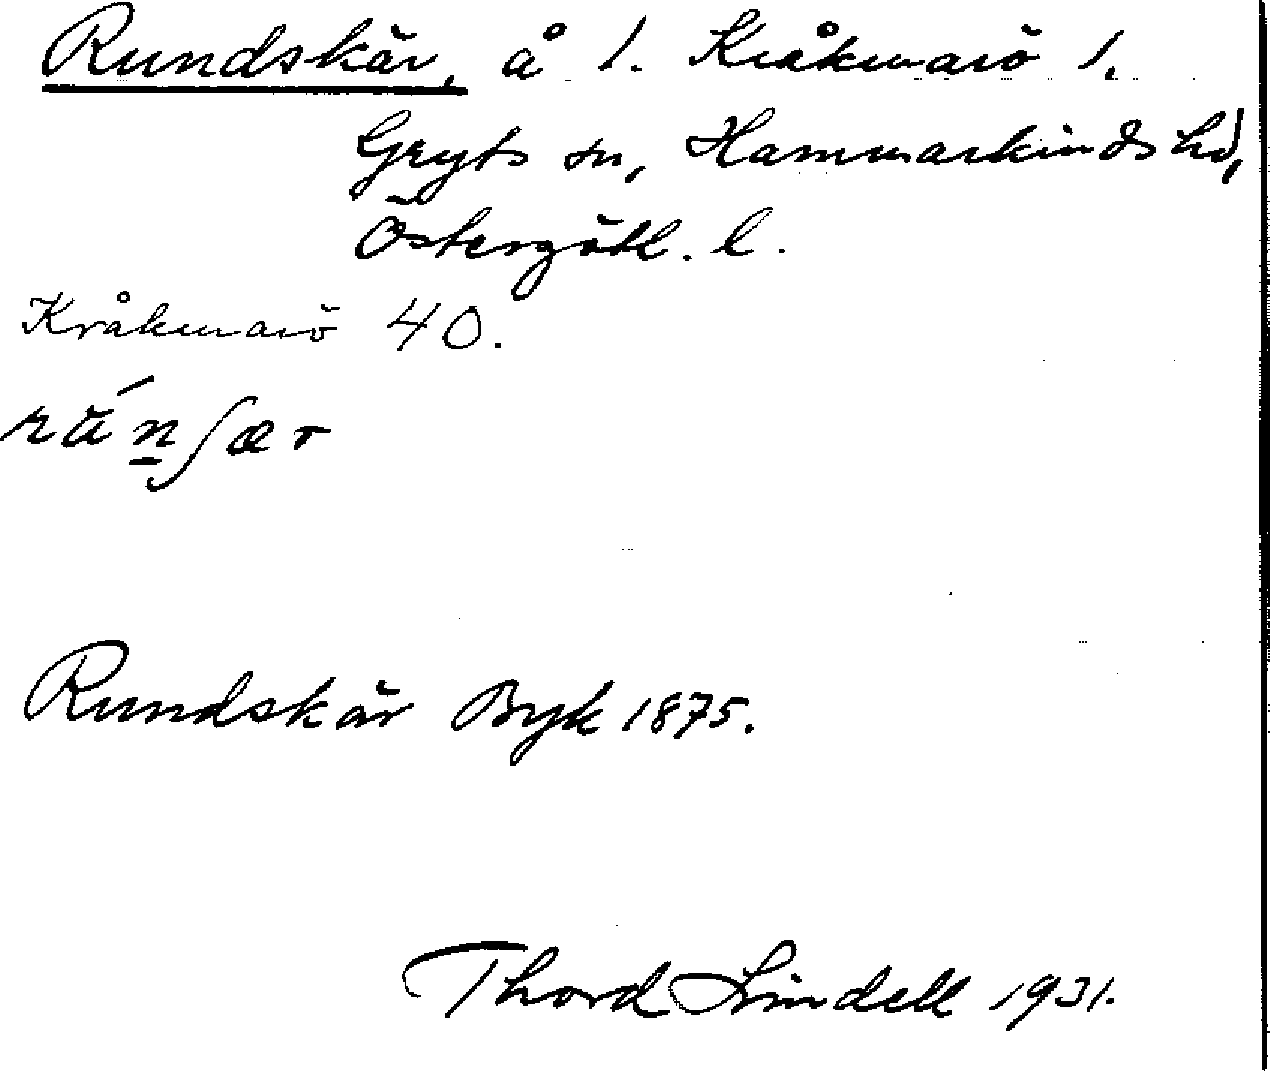 Rundskär, å 1. Kråkmarö 1.
Gryts sn, Hammarkinds hd,
Östergötl. l.
Kråkmarö 40.
Rundskär Byk 1875.
Thord Lindell 1931.